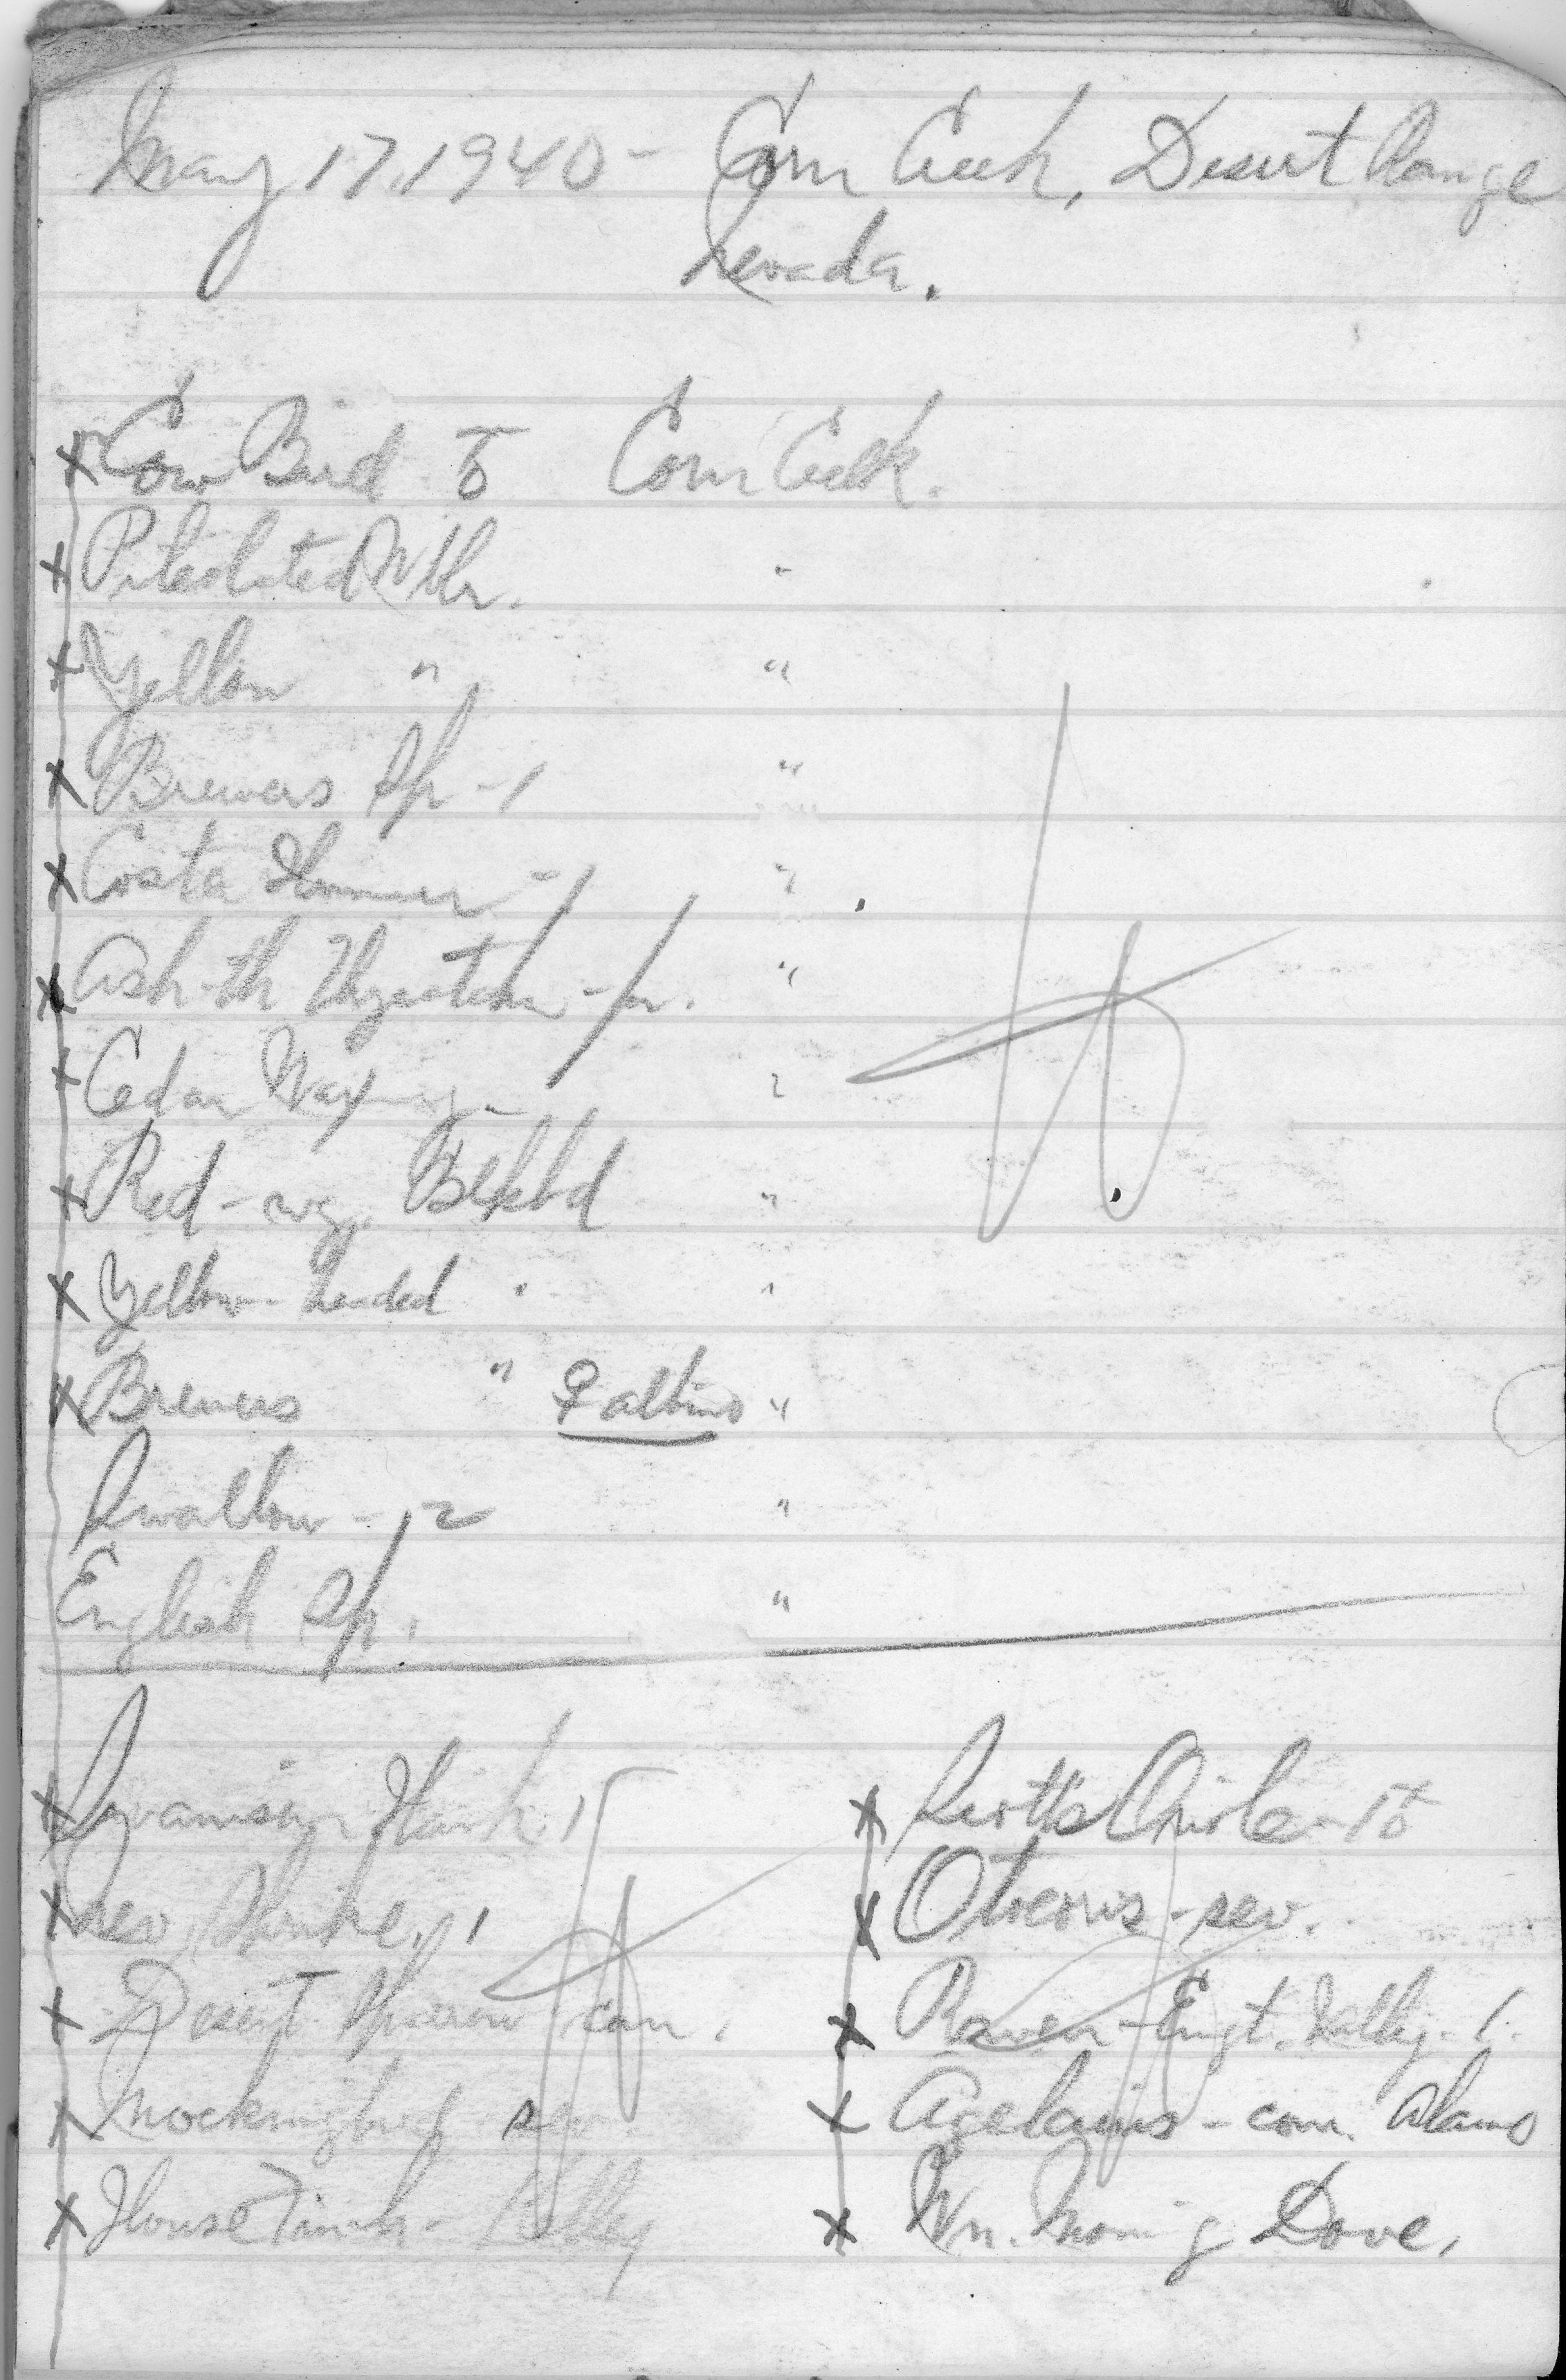 May 17, 1940 - Corn Creek, Desert Range
Nevada.
x Cow Bird ♂ Corn Creek.
x Pileolated Wblr. "
x Yellow " "
x Brewers Sp - 1 "
x Costa Hummer - 1 "
x Ash-th Flycatcher - pr. "
x Cedar Waxwing - "
x Red-wg. Blkbd "
x Yellow-headed " "
x Brewers " ♀ albino "
Swallow - 12 "
English Sp. "
x Swainson Hawk 1
x Nev. Shrike, 1
x Desert Sparrow com.
x Mockingbird sev.
x House Finch - Valley
x Scotts Oriole - 1 ♂
x Otocoris - sev.
x Raven - Emgt. Valley - 1.
x Agelaius - com. Alamo
x Wn. Morning Dove.